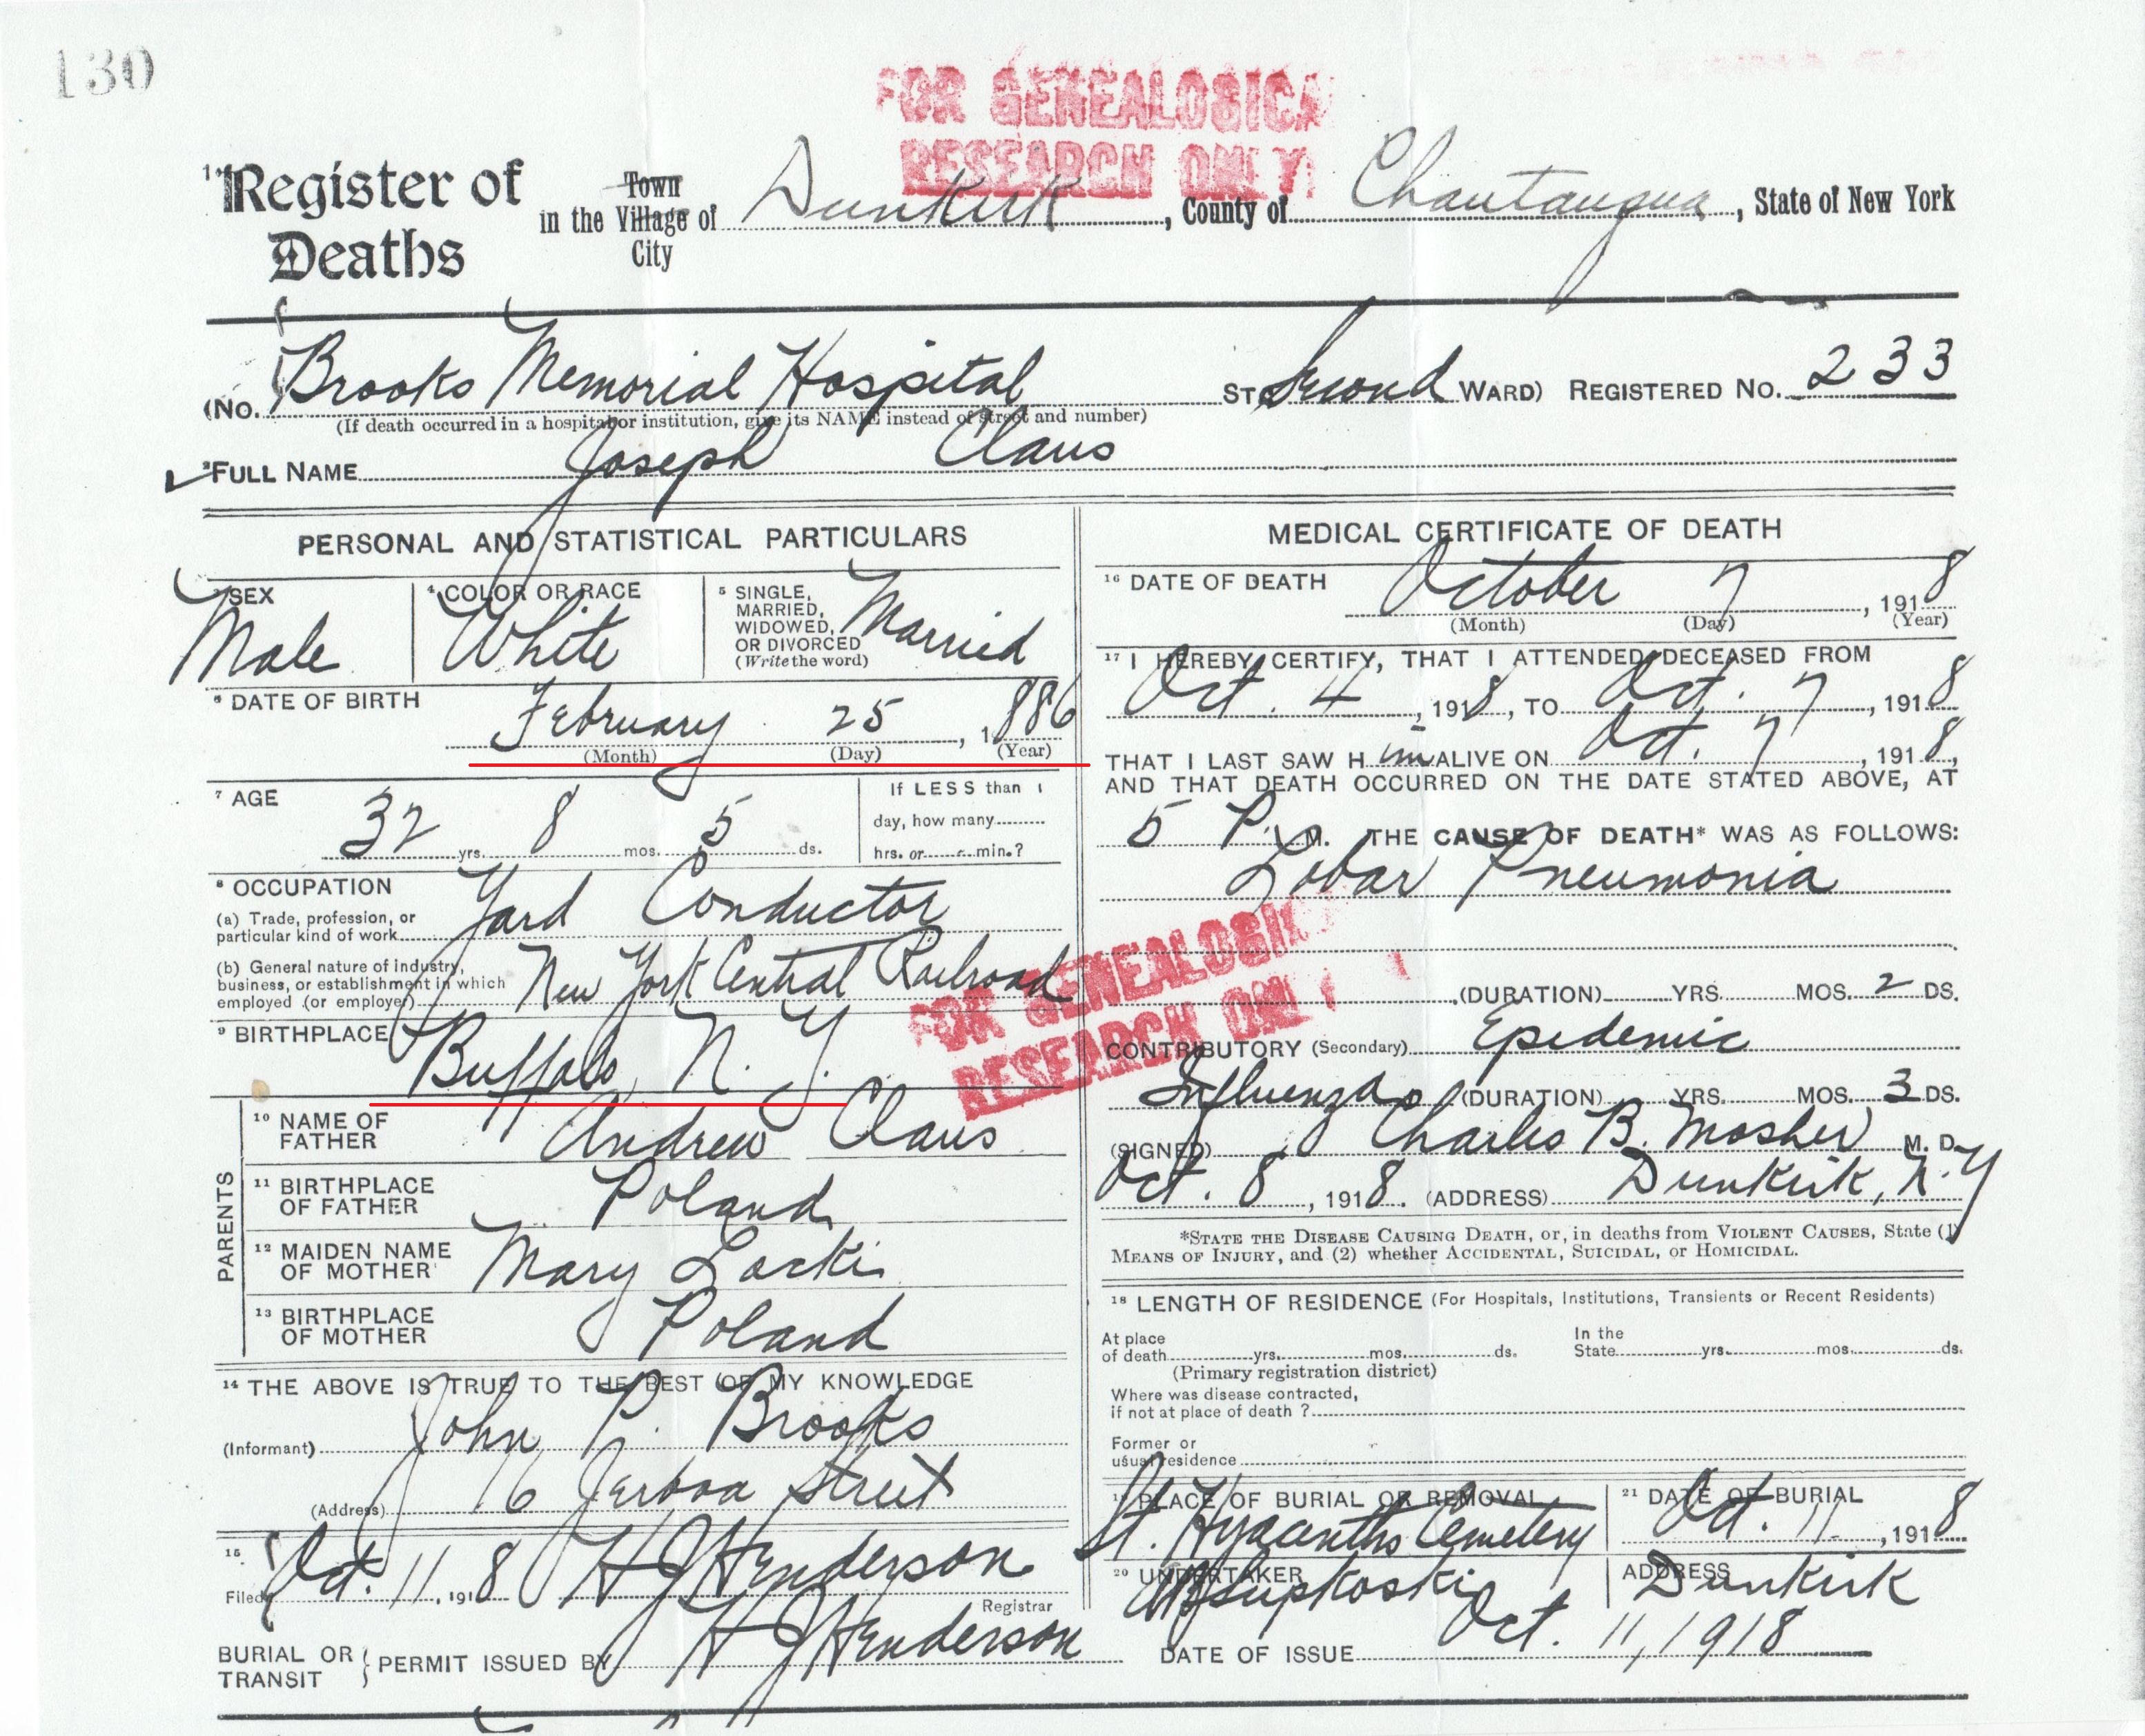 130
FOR GENEALOGICA
RESEARCH ONLY
1 Register of Deaths
Town
in the Village of Dunkirk, County of Chautauqua, State of New York
City
(No. Brooks Memorial Hospital St. Second Ward) Registered No. 233
(If death occurred in a hospital or institution, give its NAME instead of street and number)
2 FULL NAME Joseph Claus
PERSONAL AND STATISTICAL PARTICULARS
SEX
Male
4 COLOR OR RACE
White
5 SINGLE,
MARRIED,
WIDOWED,
OR DIVORCED
(Write the word)
Married
6 DATE OF BIRTH
February 25, 1886
(Month) (Day) (Year)
7 AGE
32 yrs. 8 mos. 5 ds.
If LESS than 1
day, how many
hrs. or min.?
8 OCCUPATION
(a) Trade, profession, or
particular kind of work Yard Conductor
(b) General nature of industry,
business, or establishment in which
employed (or employer) New York Central Railroad
9 BIRTHPLACE
Buffalo, N. Y.
PARENTS
10 NAME OF
FATHER Andrew Claus
11 BIRTHPLACE
OF FATHER Poland
12 MAIDEN NAME
OF MOTHER Mary Lacki
13 BIRTHPLACE
OF MOTHER Poland
14 THE ABOVE IS TRUE TO THE BEST OF MY KNOWLEDGE
(Informant) John P. Brooks
(Address) 16 Jerboa Street
15
Filed Oct. 11, 1918 H J Henderson
Registrar
BURIAL OR
TRANSIT } PERMIT ISSUED BY H J Henderson
MEDICAL CERTIFICATE OF DEATH
16 DATE OF DEATH
October 7, 1918
(Month) (Day) (Year)
17 I HEREBY CERTIFY, THAT I ATTENDED DECEASED FROM
Oct. 4, 1918, TO Oct. 7, 1918
THAT I LAST SAW H im ALIVE ON Oct. 7, 1918,
AND THAT DEATH OCCURRED ON THE DATE STATED ABOVE, AT
5 P. M. THE CAUSE OF DEATH* WAS AS FOLLOWS:
Lobar Pneumonia
FOR GENEALOGI
RESEARCH ONL
(DURATION) YRS. MOS. 2 DS.
CONTRIBUTORY (Secondary) Epidemic
Influenza (DURATION) YRS. MOS. 3 DS.
(SIGNED) Charles B. Mosher M. D.
Oct. 8, 1918. (ADDRESS) Dunkirk, N.Y
*STATE THE DISEASE CAUSING DEATH, or, in deaths from VIOLENT CAUSES, State (1)
MEANS OF INJURY, and (2) whether ACCIDENTAL, SUICIDAL, or HOMICIDAL.
18 LENGTH OF RESIDENCE (For Hospitals, Institutions, Transients or Recent Residents)
At place
of death yrs. mos. ds.
In the
State yrs. mos. ds.
(Primary registration district)
Where was disease contracted,
if not at place of death ?
Former or
usual residence
19 PLACE OF BURIAL OR REMOVAL
St. Hyacinths Cemetery
21 DATE OF BURIAL
Oct. 11, 1918
20 UNDERTAKER
ADDRESS
Dunkirk
DATE OF ISSUE Oct. 11, 1918